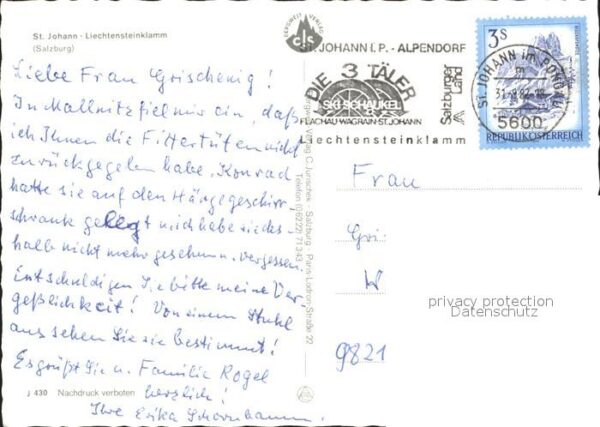 St. Johann - Liechtensteinklamm
(Salzburg)
Liebe Frau Grischenig!
In Mallnitz fiel mir ein, daß
ich Ihnen die Filtertüten nicht
zurückgegeben habe. Konrad
hatte sie auf den Hängegeschirr-
schrank gelegt und ich habe sie des-
halb nicht mehr gesehen u. vergessen.
Entschuldigen Sie bitte meine Ver-
geßlichkeit! Von einem Stuhl
aus sehen Sie sie bestimmt!
Es grüßt Sie u. Familie Rogel
herzlich!
Ihre Erika
J 430 Nachdruck verboten
BERGWELT VERLAG
CJS
Verlag C. Jurischek - Salzburg - Paris-Lodron-Straße 22
Telefon (06222) 71343
ST. JOHANN I. P. - ALPENDORF
DIE 3 TÄLER
SKISCHAUKEL
FLACHAU-WAGRAIN-ST. JOHANN
Liechtensteinklamm
Salzburger
Land
3 S
ST. JOHANN im PONGAU
m
5600
REPUBLIK ÖSTERREICH
Frau
Gri
W
9821
privacy protection
Datenschutz